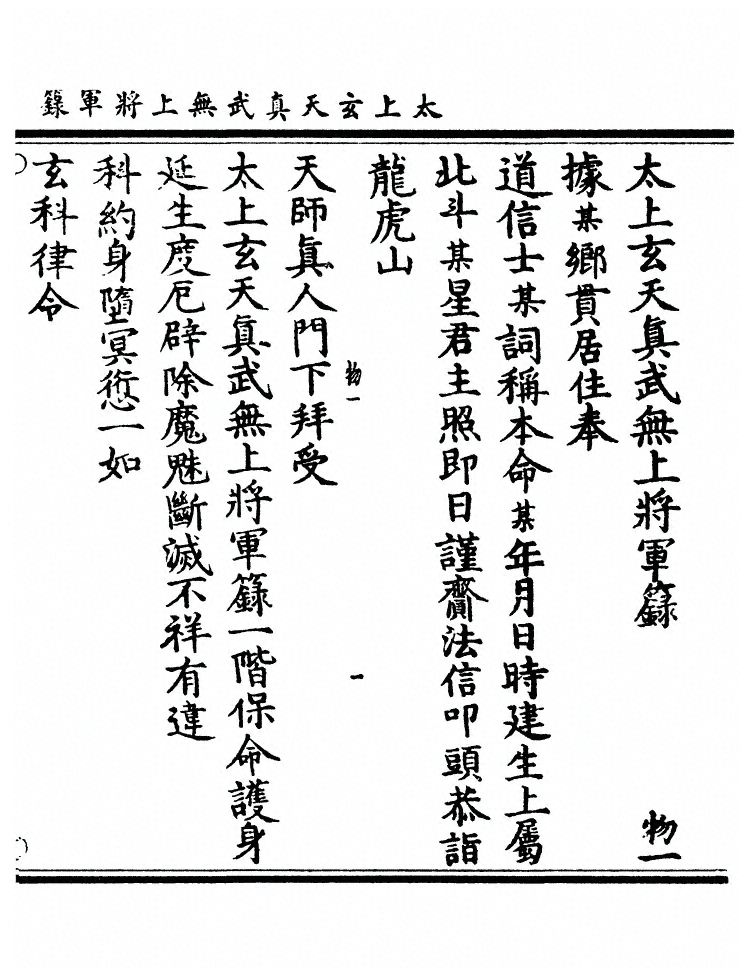 太上玄天真武無上將軍籙
太上玄天眞武無上將軍籙 物一
據某鄉貫居住奉
道信士某詞稱本命某年月日時建生上屬
北斗某星君主照即日謹齎法信叩頭恭詣
龍虎山
物一 一
天師眞人門下拜受
太上玄天眞武無上將軍籙一階保命護身
延生度厄辟除魔魅斷滅不祥有違
科約身墮冥愆一如
玄科律令